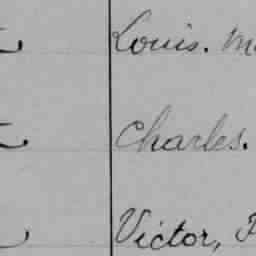 Louis.
Charles.
Victor,